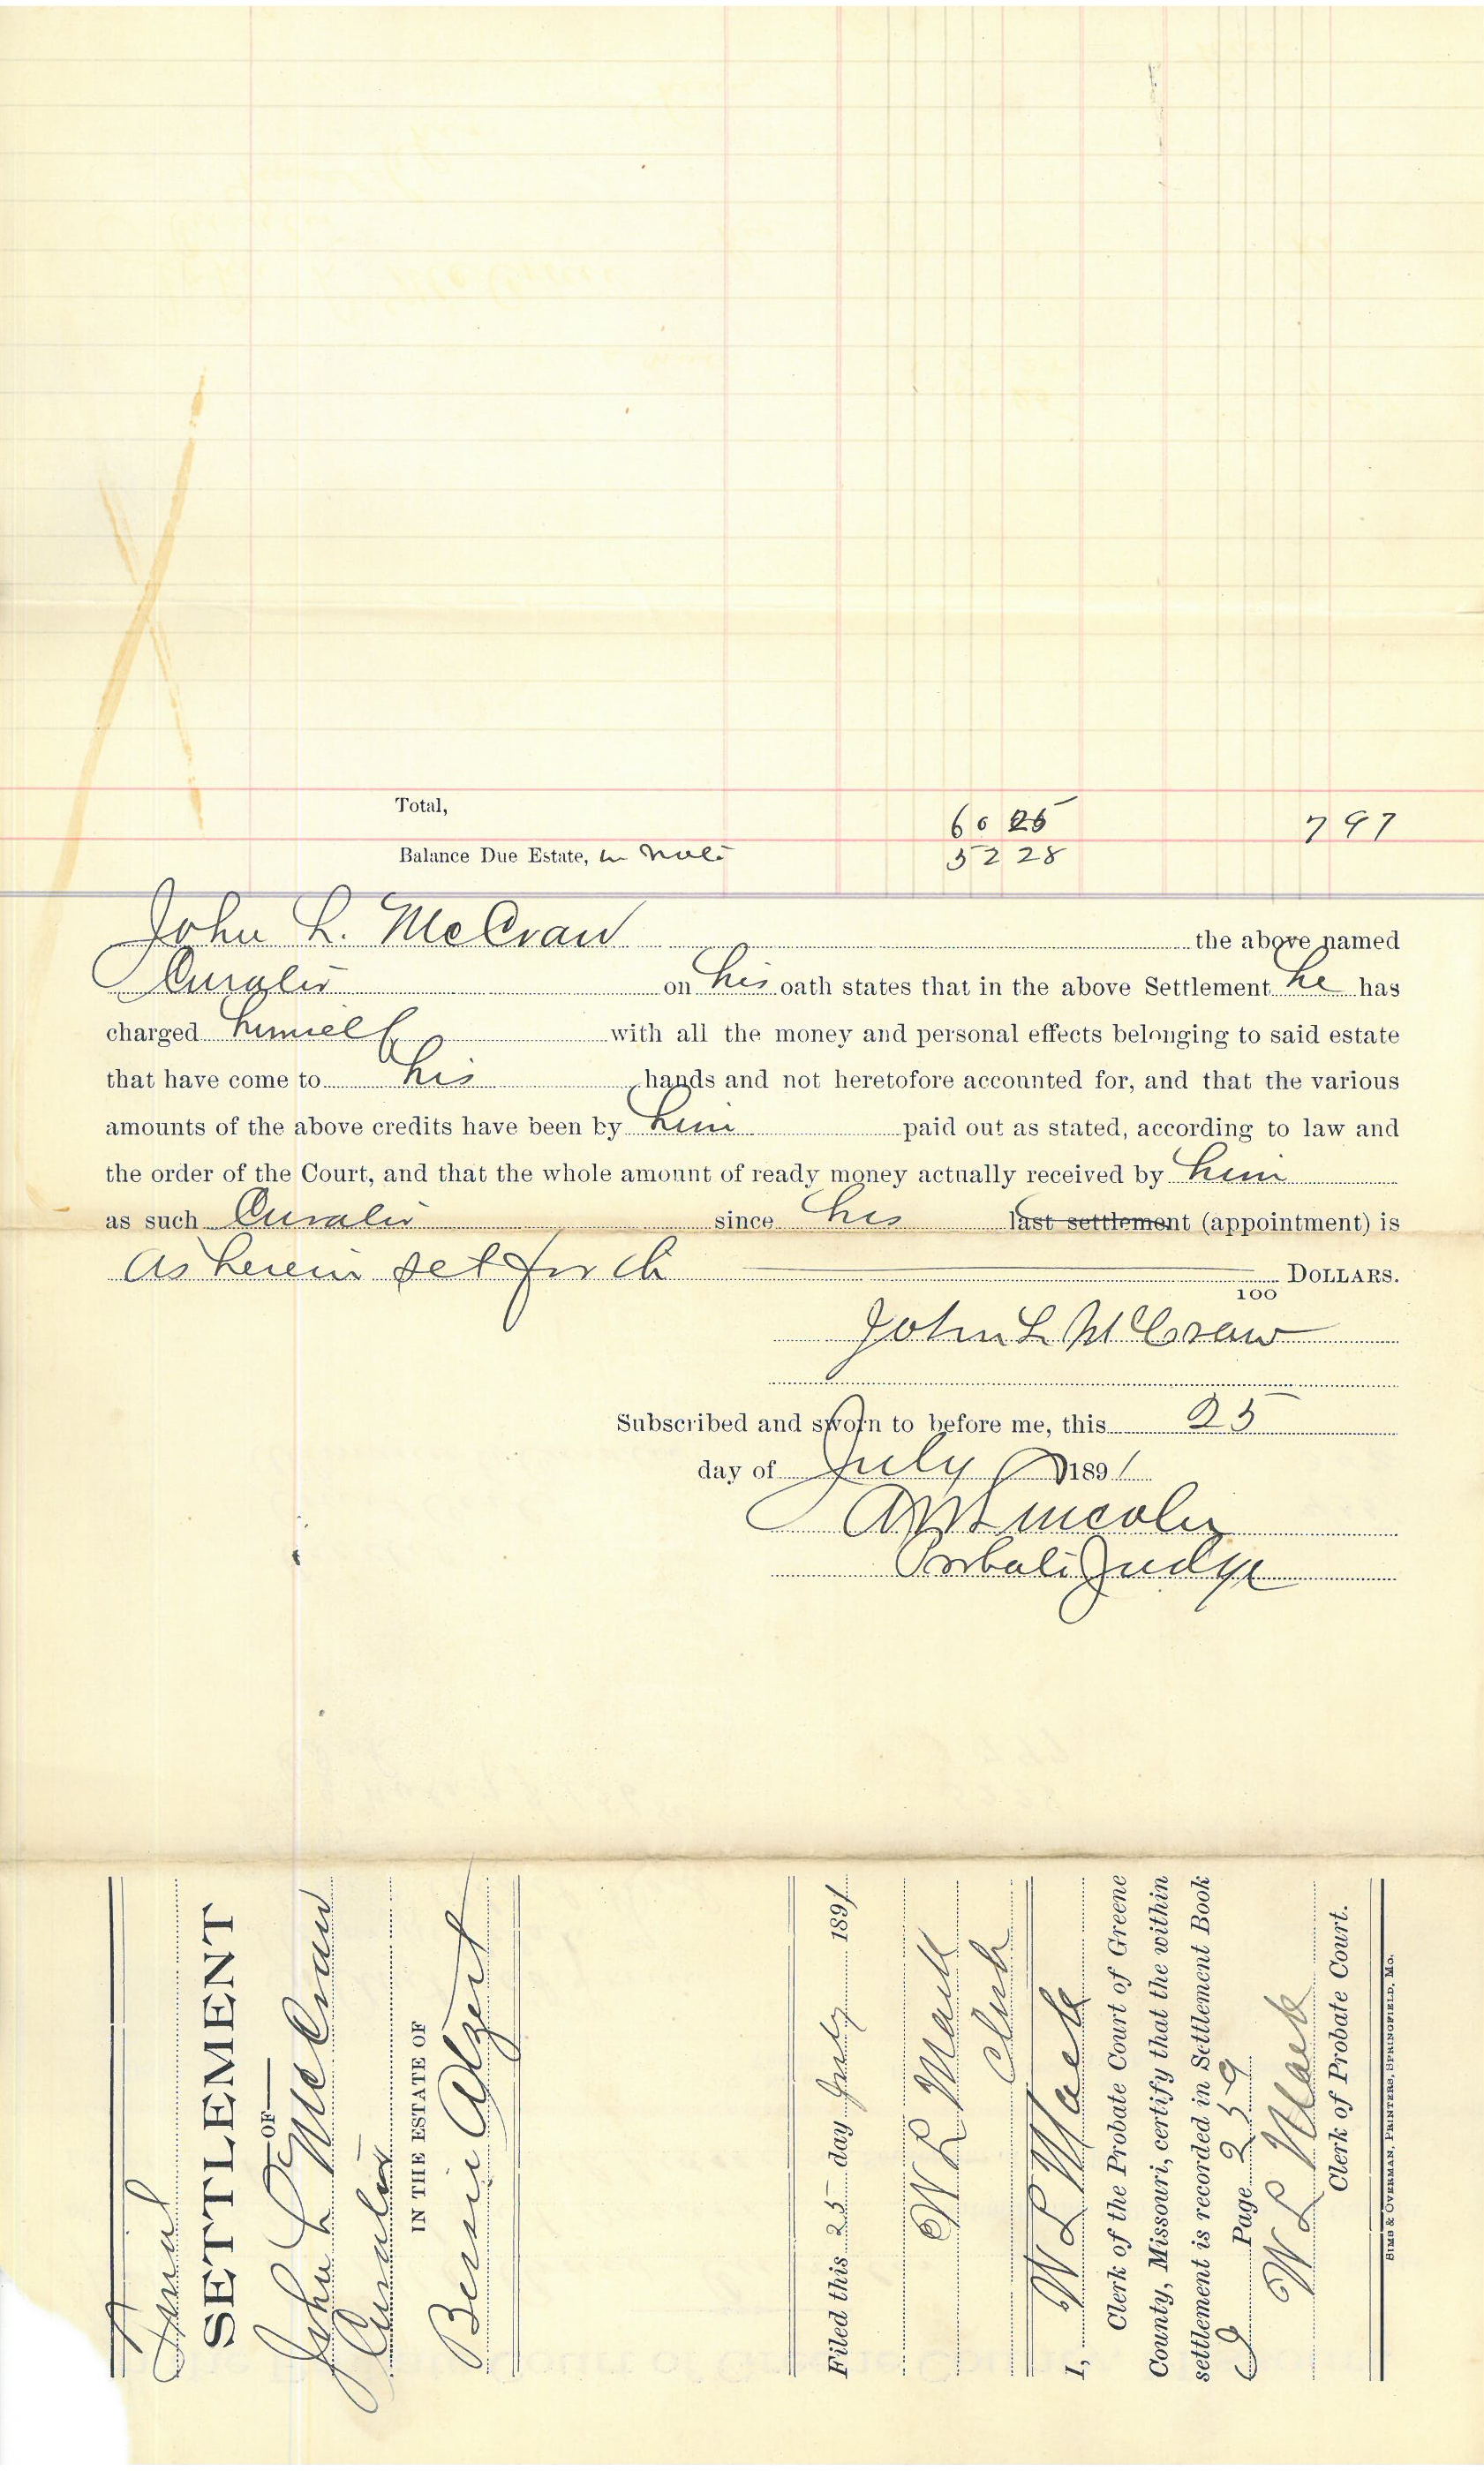 Total, 60 25 7 97
Balance Due Estate, in note 52 28
John L. McCraw the above named
Curator on his oath states that in the above Settlement he has
charged himself with all the money and personal effects belonging to said estate
that have come to his hands and not heretofore accounted for, and that the various
amounts of the above credits have been by him paid out as stated, according to law and
the order of the Court, and that the whole amount of ready money actually received by him
as such Curator since his last settlement (appointment) is
as herein set forth 100 DOLLARS.
John L McCraw
Subscribed and sworn to before me, this 25
day of July 1891
Lincoln
Probate Judge
Final
SETTLEMENT
OF
John L McCraw
Curator
IN THE ESTATE OF
Bessie
Filed this 25 day July 1891
W L Mack
Clerk
I, W L Mack
Clerk of the Probate Court of Greene
County, Missouri, certify that the within
settlement is recorded in Settlement Book
Page 259
W L Mack
Clerk of Probate Court.
SIMS & OVERMAN, PRINTERS, SPRINGFIELD, MO.